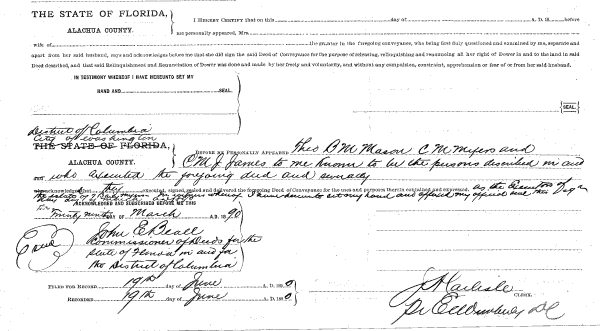 THE STATE OF FLORIDA,
ALACHUA COUNTY.
I HEREBY CERTIFY that on this day of A. D. 18 before
me personally appeared, Mrs.
wife of the grantor in the foregoing conveyance, who being first duly questioned and examined by me, separate and
apart from her said husband, says and acknowledges before me that she did sign the said Deed of Conveyance for the purpose of releasing, relinquishing and renouncing all her right of Dower in and to the said land in said
Deed described, and that said Relinquishment and Renunciation of Dower was done and made by her freely and voluntarily, and without any compulsion, constraint, apprehension or fear of or from her said husband.
IN TESTIMONY WHEREOF I HAVE HEREUNTO SET MY
HAND AND SEAL
SEAL.
District of Columbia
City of Washington
THE STATE OF FLORIDA,
ALACHUA COUNTY.
BEFORE ME PERSONALLY APPEARED Theo B M Mason C M Myers and
C M J James to me known to be the persons described in and
who executed the foregoing deed and severally
acknowledged they executed, signed, sealed and delivered the foregoing Deed of Conveyance for the uses and purposes therein contained and expressed, as the Executors
the estate of my hand and my official seal this
ACKNOWLEDGED AND SUBSCRIBED BEFORE ME THIS
DAY OF March A. D. 1890
John E Beall
Commissioner of Deeds for the
State of Florida in and for
the District of Columbia
FILED FOR RECORD 19th day of June A. D. 1890
RECORDED 19th day of June A. D. 1890
CLERK.